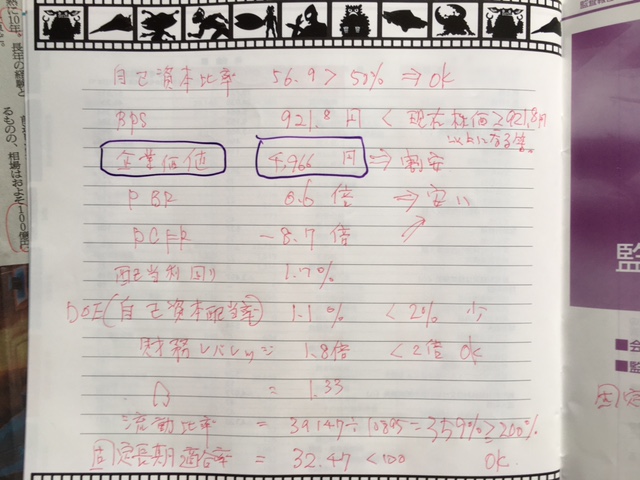 自己資本比率 56.9 > 50% ⇒ OK
BPS 921.8 円 < 現在株価≧921.8円
以上になる筈
企業価値 4,966 円 ⇒ 割安
PBR 0.6 倍 ⇒ 安い
PCFR -8.7 倍
配当利回り 1.17%
DOE(自己資本配当率) 1.1 % < 2% 少
財務レバレッジ 1.8倍 < 2倍 OK
β = 1.33
流動比率 = 39147÷10895=359%≧200%
固定長期適合率 = 32.47 <100 OK.
10年。長年の経験と
るものの、相場はおよそ100億円
監
■会
■監
固定